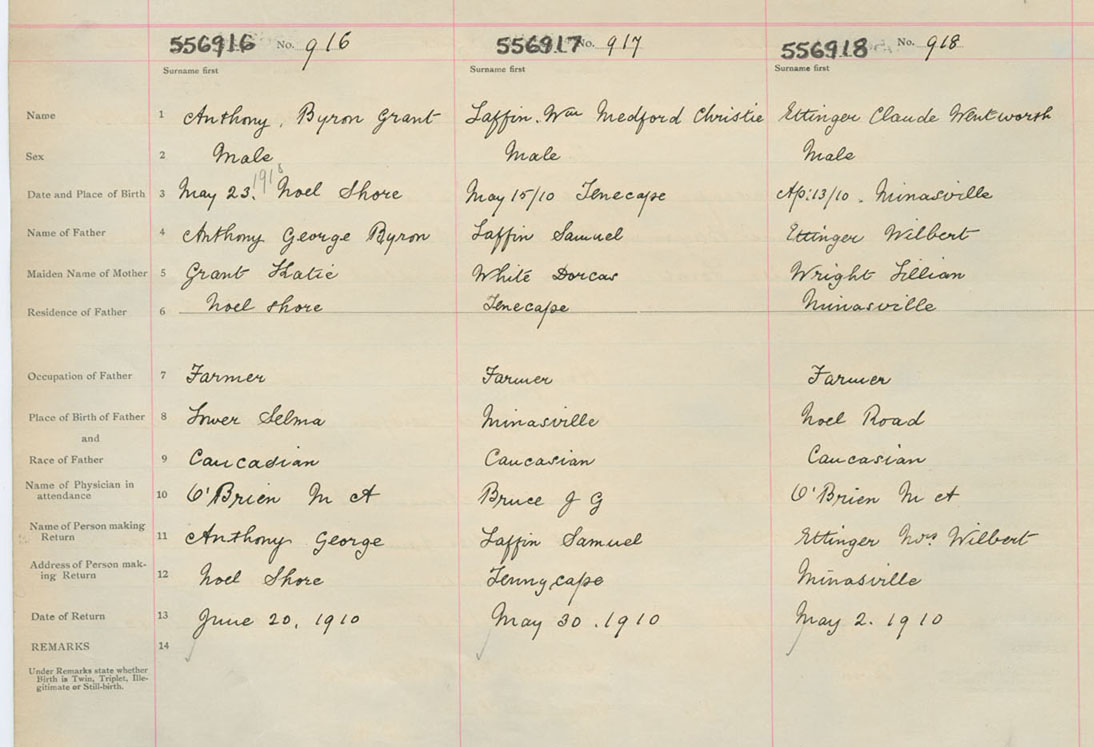 556916 No. 916 556917 No. 917 556918 No. 918
Surname first Surname first Surname first
Name 1 Anthony, Byron Grant Laffin. Wm Medford Christie Ettinger Claude Wentworth
Sex 2 Male Male Male
1910
Date and Place of Birth 3 May 23. Noel Shore May 15/10 Tenecape Ap:13/10. Minasville
Name of Father 4 Anthony George Byron Laffin Samuel Ettinger Wilbert
Maiden Name of Mother 5 Grant Katie White Dorcas Wright Lillian
Residence of Father 6 Noel Shore Tenecape Minasville
Occupation of Father 7 Farmer Farmer Farmer
Place of Birth of Father 8 Lower Selma Minasville Noel Road
and
Race of Father 9 Caucasian Caucasian Caucasian
Name of Physician in
attendance 10 O'Brien M A Bruce J G O'Brien M A
Name of Person making
Return 11 Anthony George Laffin Samuel Ettinger Mrs Wilbert
Address of Person mak-
ing Return 12 Noel Shore Tennycape Minasville
Date of Return 13 June 20, 1910 May 30. 1910 May 2. 1910
REMARKS 14
Under Remarks state whether
Birth is Twin, Triplet, Ille-
gitimate or Still-birth.